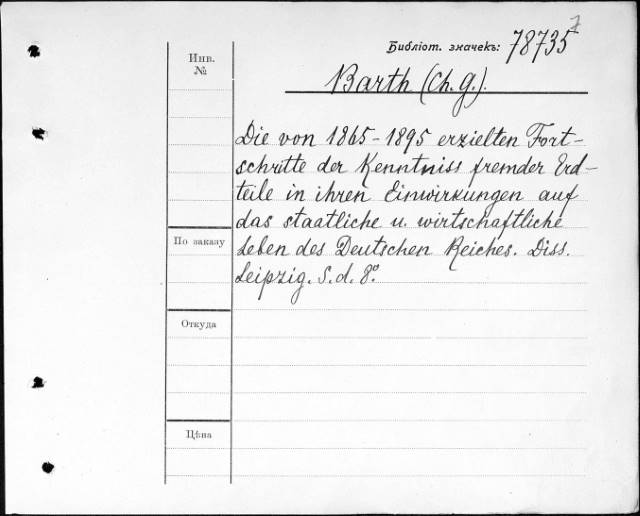 7
Библіот. значекъ: 78735
Инв.
№
Barth (Ch. G.).
Die von 1865-1895 erzielten Fort-
schritte der Kenntniss fremder Erd-
teile in ihren Einwirkungen auf
das staatliche u. wirtschaftliche
Leben des Deutschen Reiches. Diss.
Leipzig. S. d. 8°.
По заказу
Откуда
Цѣна